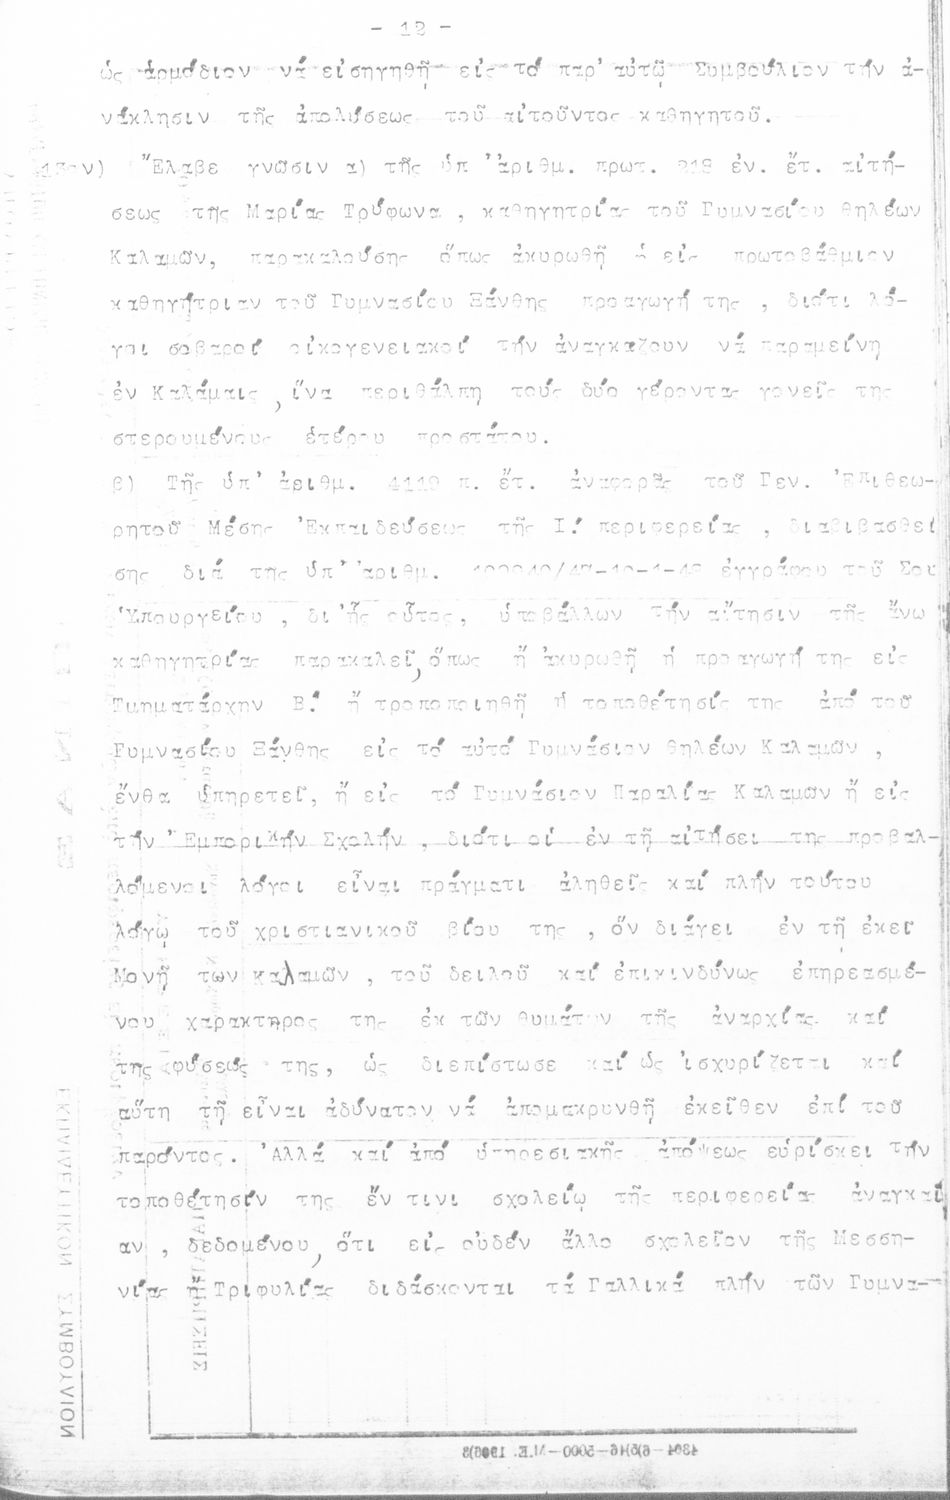 - 12 -
ὡς ἁρμόδιον νά εἰσηγηθῇ εἰς τό παρ' αὐτῷ Συμβούλιον τήν ἀ-
νάκλησιν τῆς ἀπολύσεως τοῦ αἰτοῦντος καθηγητοῦ.
13ον) Ἔλαβε γνῶσιν α) τῆς ὑπ' ἀριθμ. πρωτ. 218 ἐν. ἔτ. αἰτή-
σεως τῆς Μαρίας Τρύφωνα , καθηγητρίας τοῦ Γυμνασίου θηλέων
Καλαμῶν, παρακαλούσης ὅπως ἀκυρωθῇ ἡ εἰς πρωτοβάθμιον
καθηγήτριαν τοῦ Γυμνασίου Ξάνθης προαγωγή της , διότι λό-
γοι σοβαροί οἰκογενειακοί τήν ἀναγκάζουν νά παραμείνῃ
ἐν Καλάμαις , ἵνα περιθάλπῃ τούς δύο γέροντας γονεῖς της
στερουμένους ἑτέρου προστάτου.
β) Τῆς ὑπ' ἀριθμ. 4119 π. ἔτ. ἀναφορᾶς τοῦ Γεν. Ἐπιθεω-
ρητοῦ Μέσης Ἐκπαιδεύσεως τῆς Ι! περιφερείας , διαβιβασθεί
σης διά τῆς ὑπ' ἀριθμ. ἐγγράφου τοῦ Σου
Ὑπουργείου , δι' ἧς οὗτος, ὑποβάλλων τήν αἴτησιν τῆς ἄνω
καθηγητρίας παρακαλεῖ, ὅπως ἤ ἀκυρωθῇ ἡ προαγωγή της εἰς
Τμηματάρχην Β! ἤ τροποποιηθῇ ἡ τοποθέτησίς της ἀπό τοῦ
Γυμνασίου Ξάνθης εἰς τό αὐτό Γυμνάσιον θηλέων Καλαμῶν ,
ἔνθα ὑπηρετεῖ, ἤ εἰς τό Γυμνάσιον Παραλίας Καλαμῶν ἤ εἰς
τήν Ἐμπορικήν Σχολήν , διότι οἱ ἐν τῇ αἰτήσει της προβαλ-
λόμενοι λόγοι εἶναι πράγματι ἀληθεῖς καί πλήν τούτου
λόγῳ τοῦ χριστιανικοῦ βίου της , ὅν διάγει ἐν τῇ ἐκεῖ
Μονῇ των καλαμῶν , τοῦ δειλοῦ καί ἐπικινδύνως ἐπηρεασμέ-
νου χαρακτηρος της ἐκ τῶν θυμάτων τῆς ἀναρχίας καί
της φύσεως της, ὡς διεπίστωσε καί ὡς ἰσχυρίζεται καί
αὕτη τῇ εἶναι ἀδύνατον νά ἀπομακρυνθῇ ἐκεῖθεν ἐπί τοῦ
παρόντος. Ἀλλά καί ἀπό ὑπηρεσιακῆς ἀπόψεως εὑρίσκει τήν
τοποθέτησίν της ἔν τινι σχολείῳ τῆς περιφερείας ἀναγκαί
αν , δεδομένου, ὅτι εἰς οὐδέν ἄλλο σχολεῖον τῆς Μεσση-
νίας ἤ Τριφυλίας διδάσκονται τά Γαλλικά πλήν τῶν Γυμνα-
ΕΚΠΑΙΔΕΥΤΙΚΟΝ ΣΥΜΒΟΥΛΙΟΝ